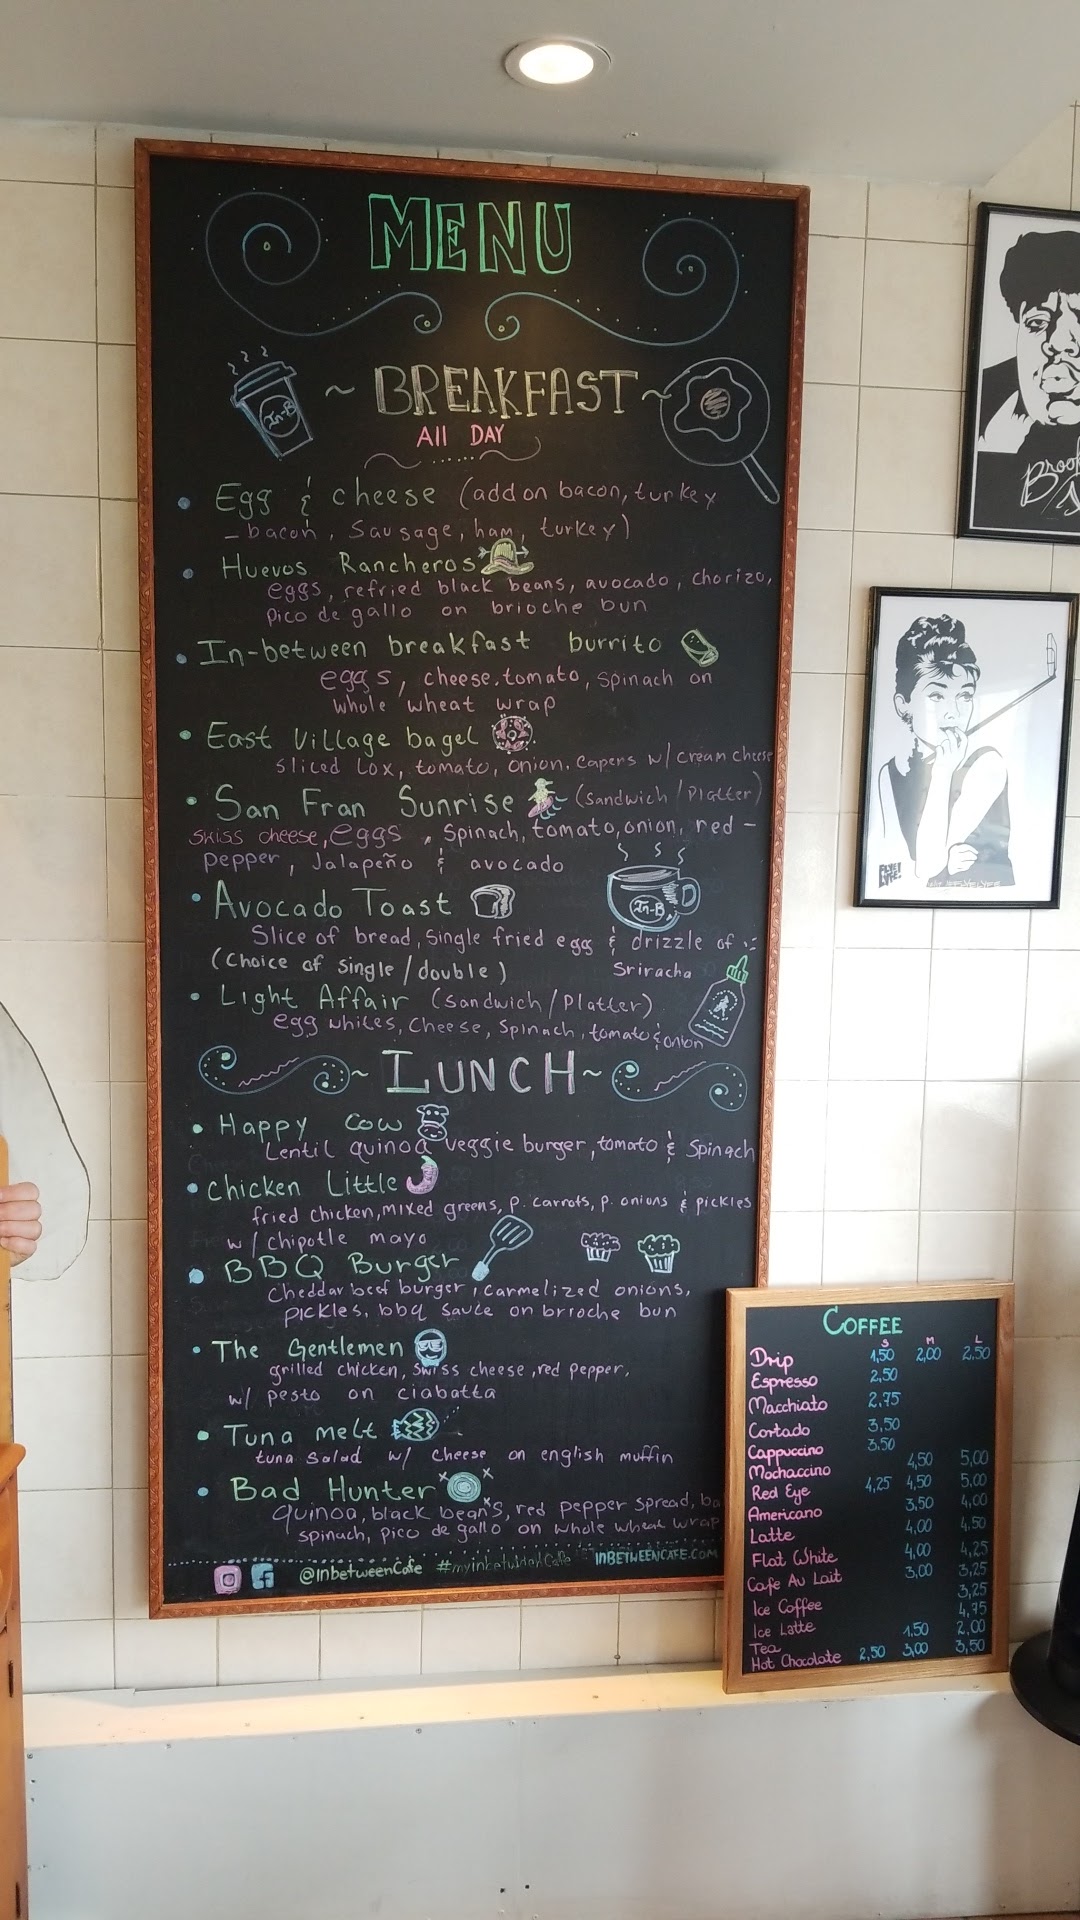 MENU
~ BREAKFAST ~
All DAY
In-B
• Egg & cheese (add on bacon, turkey
- bacon, Sausage, ham, turkey)
• Huevos Rancheros
eggs, refried black beans, avocado, chorizo,
pico de gallo on brioche bun
• In-between breakfast burrito
eggs, cheese, tomato, spinach on
whole wheat wrap
• East Village bagel
sliced lox, tomato, onion, capers w/ cream cheese
• San Fran Sunrise (Sandwich / Platter)
swiss cheese, eggs, spinach, tomato, onion, red -
pepper, Jalapeño & avocado
• Avocado Toast
In-B
Slice of bread, single fried egg & drizzle of
(choice of single / double) Sriracha
• Light Affair (Sandwich / Platter)
egg whites, cheese, spinach, tomato & onion
~ LUNCH ~
• Happy Cow
Lentil quinoa veggie burger, tomato & Spinach
• Chicken Little
fried chicken, mixed greens, p. carrots, p. onions & pickles
w/ chipotle mayo
• BBQ Burger
cheddar beef burger, carmelized onions,
pickles, bbq sauce on brioche bun
• The Gentlemen
grilled chicken, swiss cheese, red pepper,
w/ pesto on ciabatta
• Tuna melt
tuna salad w/ cheese on english muffin
• Bad Hunter
quinoa, black beans, red pepper spread, ba
spinach, pico de gallo on whole wheat wrap
@InbetweenCafe INBETWEENCAFE.COM
COFFEE
S M L
Drip 1,50 2,00 2.50
Espresso 2,50
Macchiato 2,75
Cortado 3,50
Cappuccino 3,50
Mochaccino 4,50 5,00
Red Eye 4,25 4,50 5,00
Americano 3,50 4,00
Latte 4,00 4,50
Flat White 4,00 4,25
Cafe Au Lait 3,00 3,25
Ice Coffee 3,25
Ice Latte 4,75
Tea 1,50 2,00
Hot Chocolate 2,50 3,00 3,50